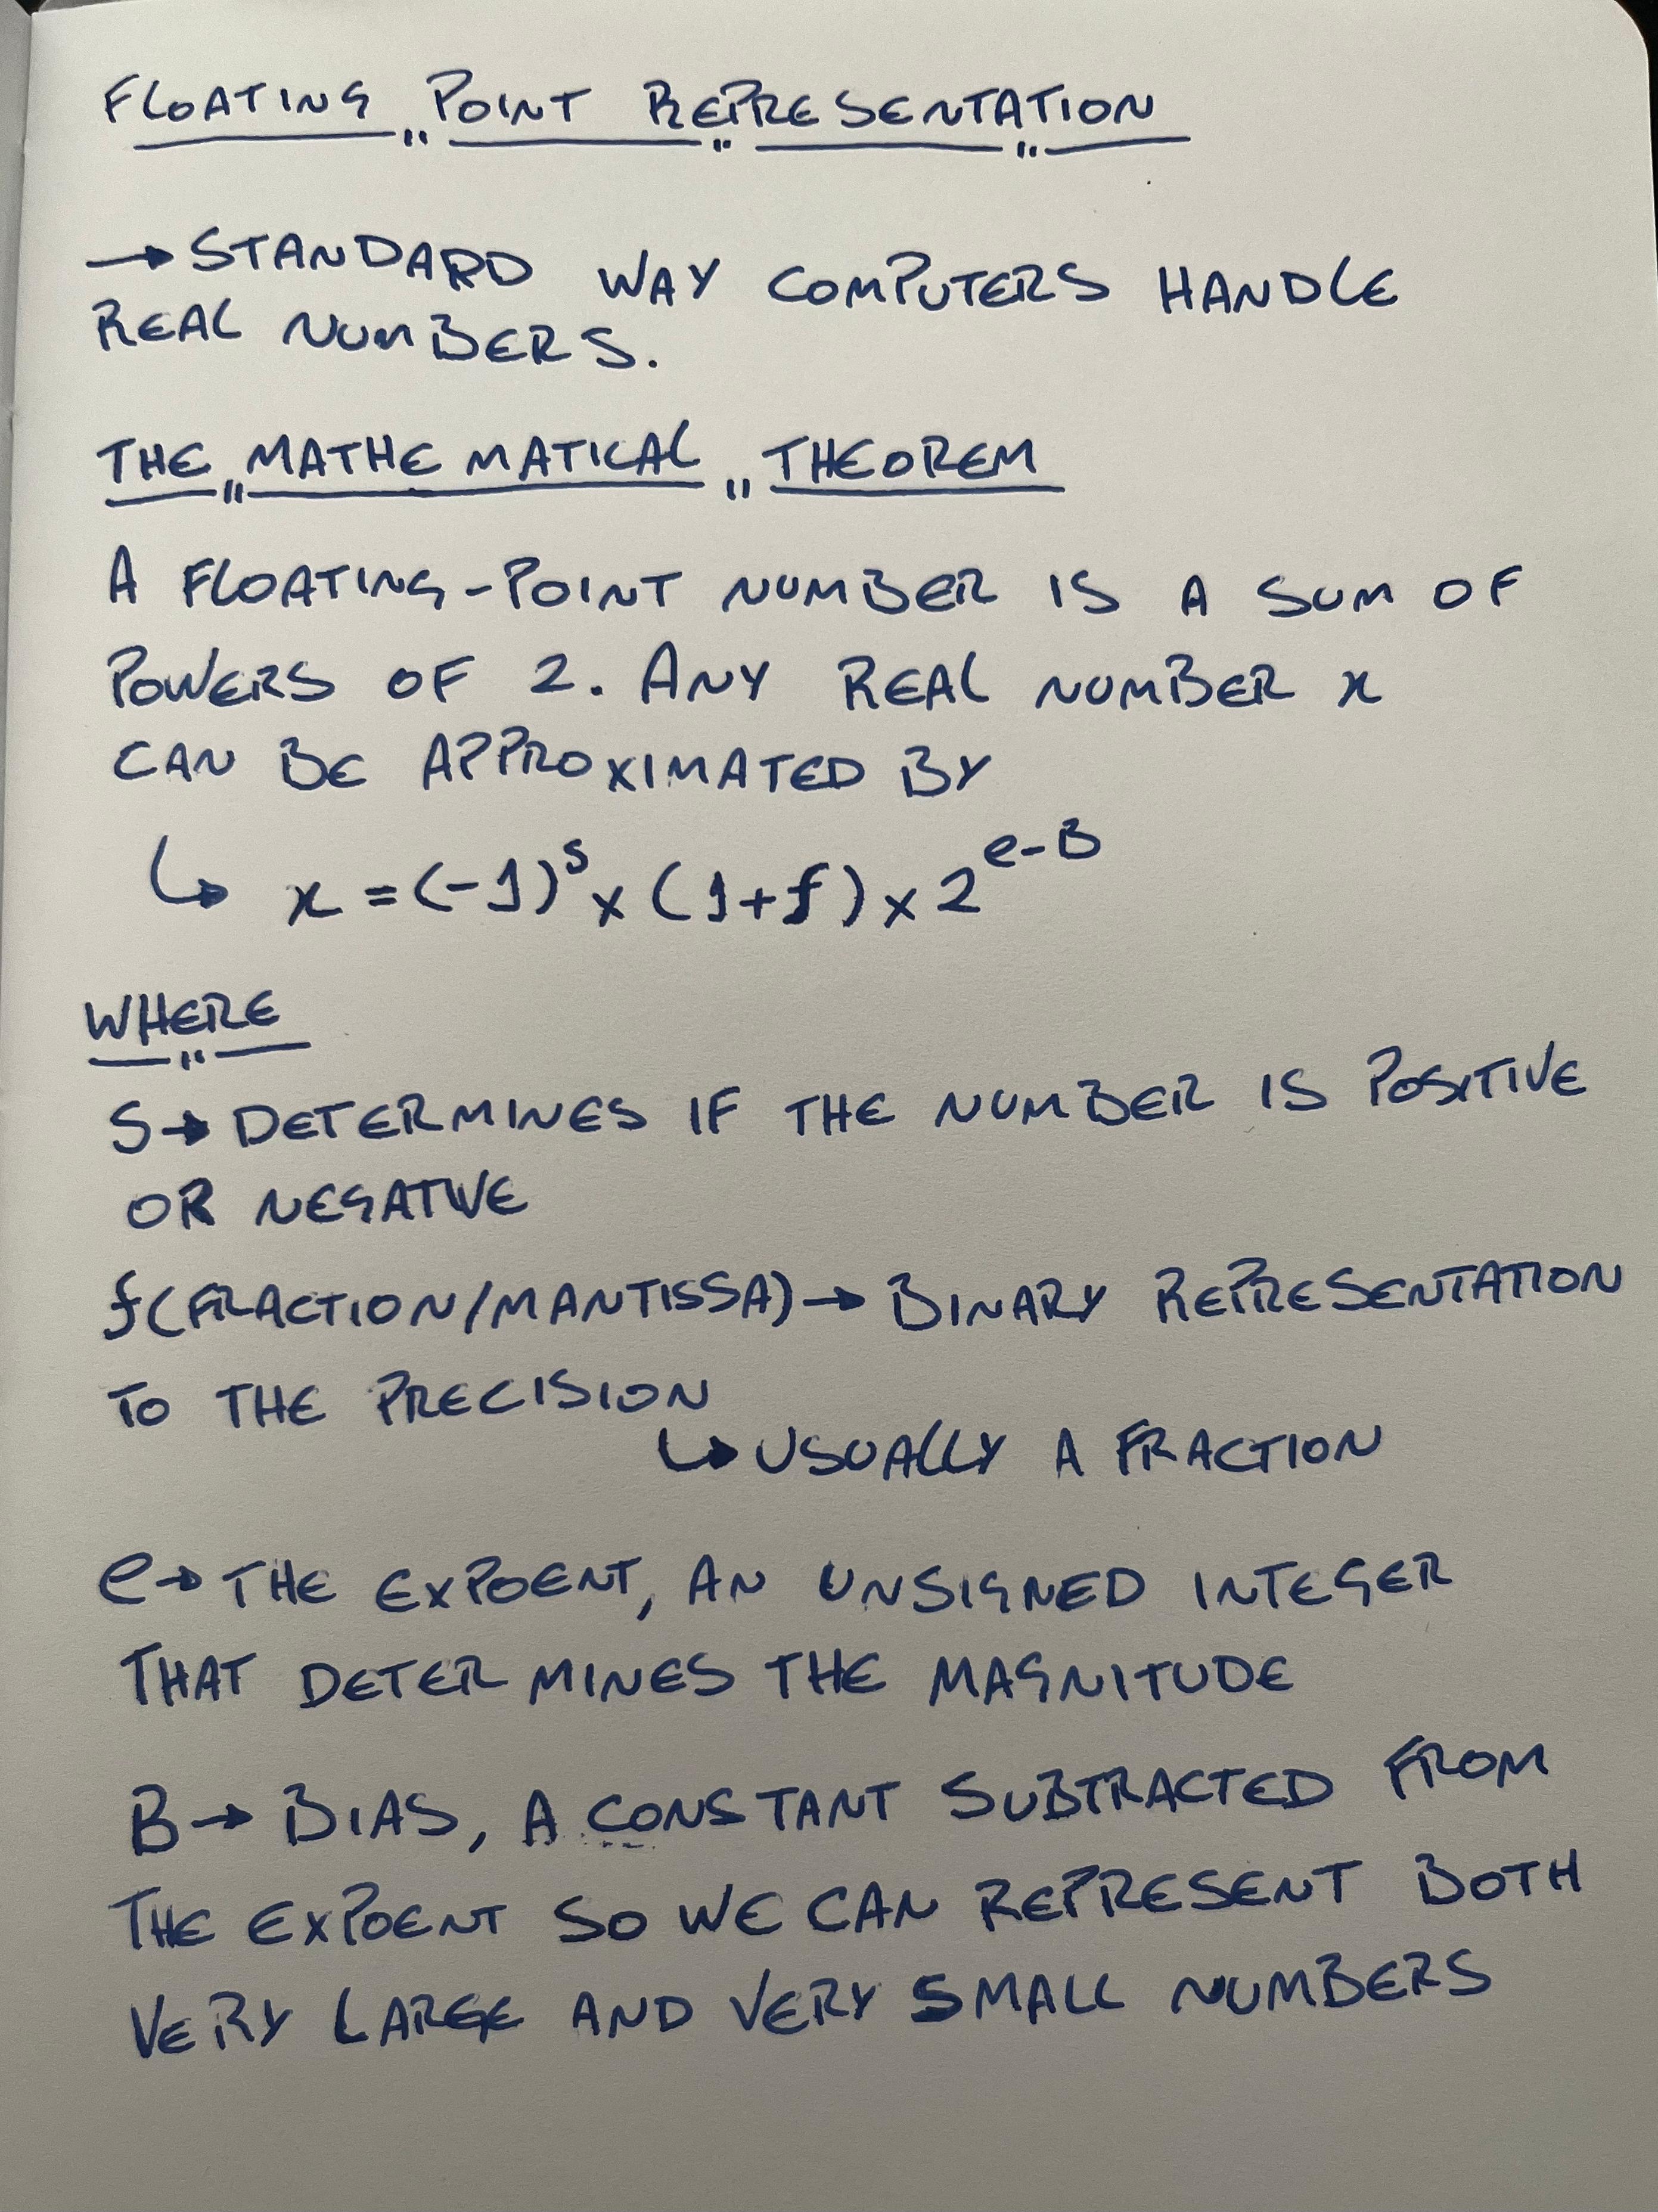 FLOATING POINT REPRESENTATION
→ STANDARD WAY COMPUTERS HANDLE
REAL NUMBERS.
THE MATHEMATICAL THEOREM
A FLOATING-POINT NUMBER IS A SUM OF
POWERS OF 2. ANY REAL NUMBER x
CAN BE APPROXIMATED BY
↳ x = (-1)^s x (1+f) x 2^(e-B)
WHERE
S → DETERMINES IF THE NUMBER IS POSITIVE
OR NEGATIVE
f(FRACTION/MANTISSA) → BINARY REPRESENTATION
TO THE PRECISION
↳ USUALLY A FRACTION
e → THE EXPOENT, AN UNSIGNED INTEGER
THAT DETERMINES THE MAGNITUDE
B → BIAS, A CONSTANT SUBTRACTED FROM
THE EXPOENT SO WE CAN REPRESENT BOTH
VERY LARGE AND VERY SMALL NUMBERS